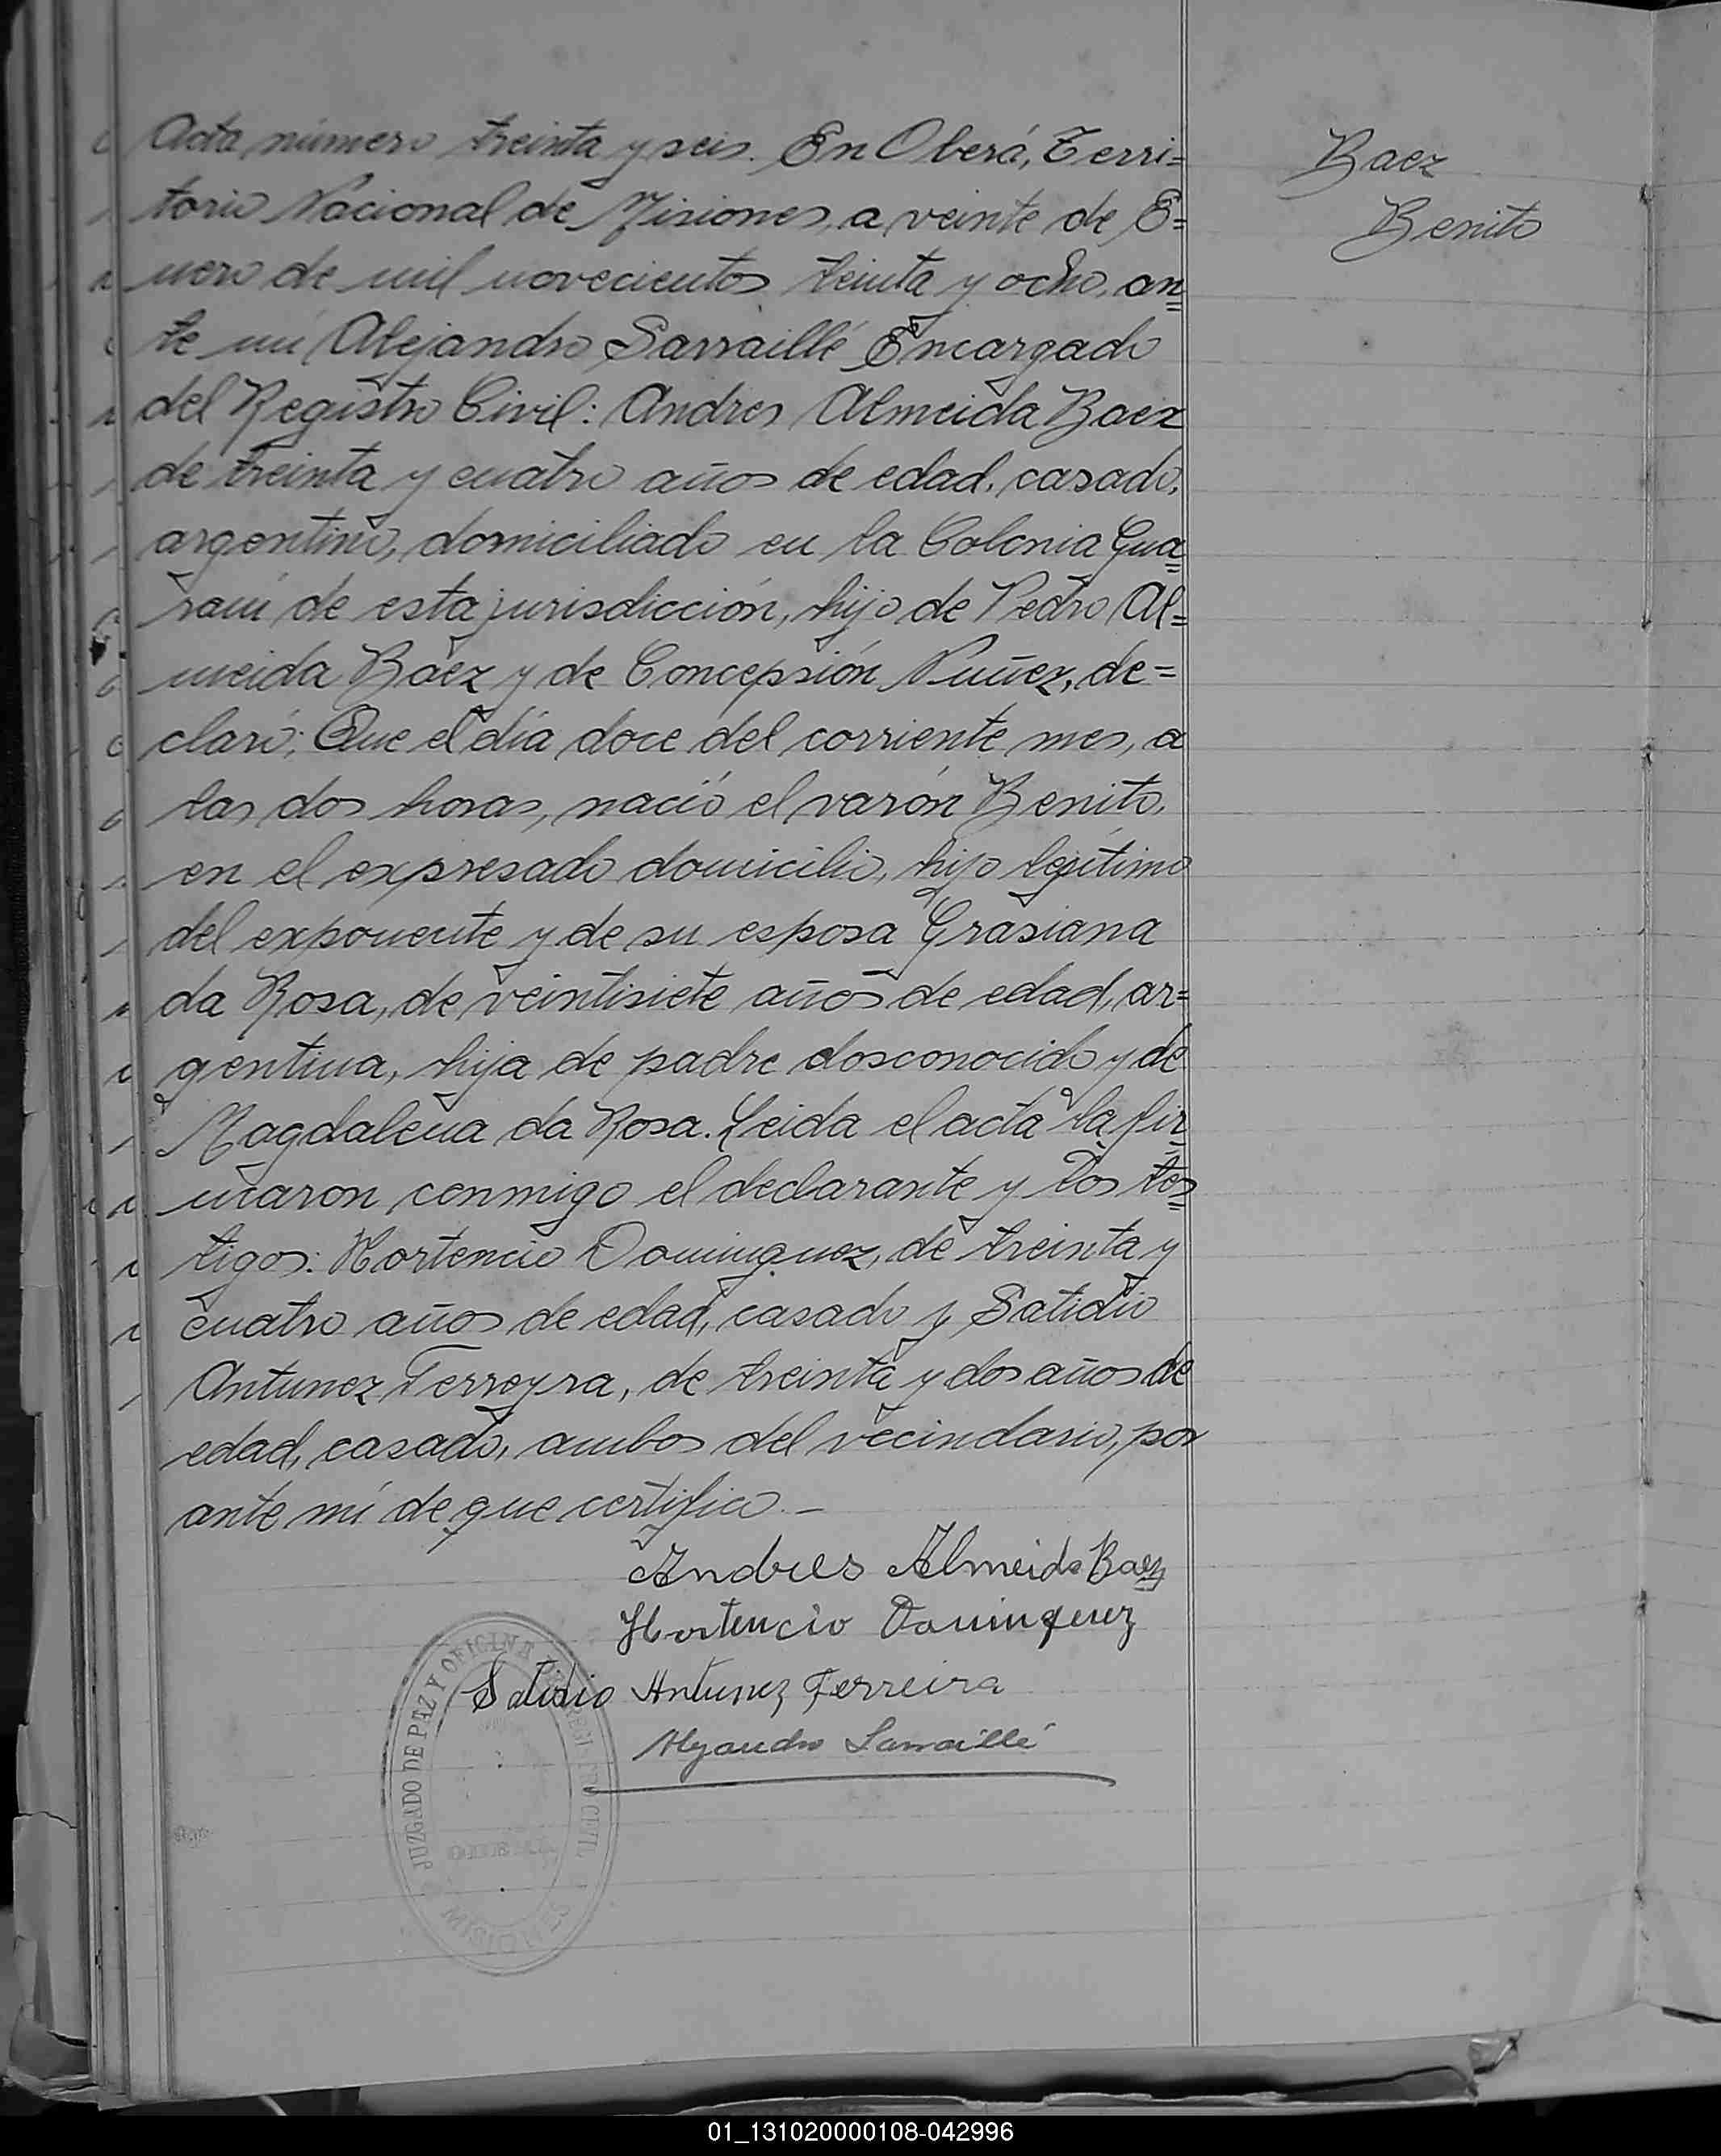 Acta número treinta y seis. En Oberá, Terri=
torio Nacional de Misiones, a veinte de E=
nero de mil novecientos treinta y ocho, an=
te mí Alejandro Sarraillé Encargado
del Registro Civil: Andres Almeida Baez
de treinta y cuatro años de edad, casado,
argentino, domiciliado en la Colonia Gua=
raní de esta jurisdicción, hijo de Pedro Al=
meida Báez y de Concepsión Nuñez, de=
claró: Que el día doce del corriente mes, a
las dos horas, nació el varón Benito,
en el expresado domicilio, hijo legítimo
del exponente y de su esposa Grasiana
da Rosa, de veintisiete años de edad, ar=
gentina, hija de padre dosconocido y de
Magdalena da Rosa. Leida el acta la fir=
maron conmigo el declarante y los tes=
tigos: Hortencio Dominguez, de treinta y
cuatro años de edad, casado y Satidio
Antunez Ferreyra, de treinta y dos años de
edad, casado, ambos del vecindario, por
ante mí de que certifico.—
Andres Almeida Baez
Hortencio Dominguez
Satidio Antunez Ferreira
Alejandro Sarraillé
JUZGADO DE PAZ Y OFICINA DEL REGISTRO CIVIL
MISIONES
Baez
Benito
01_131020000108-042996